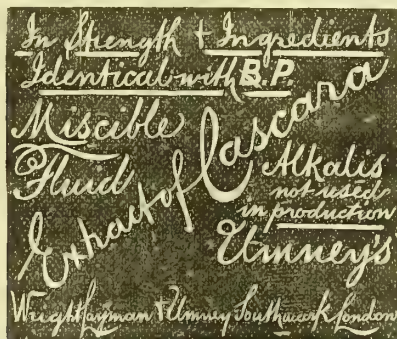 In Strength + Ingredients
Identical with B.P.
Miscible
Fluid
Extract of Cascara
Alkalis
not used
in production
Umney's
Wright Layman + Umney Southwark London